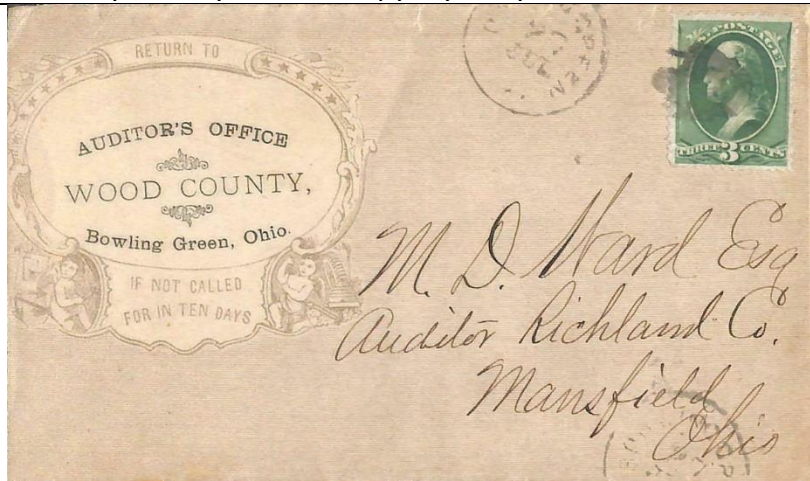 RETURN TO
AUDITOR'S OFFICE
WOOD COUNTY,
Bowling Green, Ohio.
IF NOT CALLED
FOR IN TEN DAYS
U.S. POSTAGE
THREE 3 CENTS
M. D. Ward Esq
Auditor Richland Co.
Mansfield
Ohio